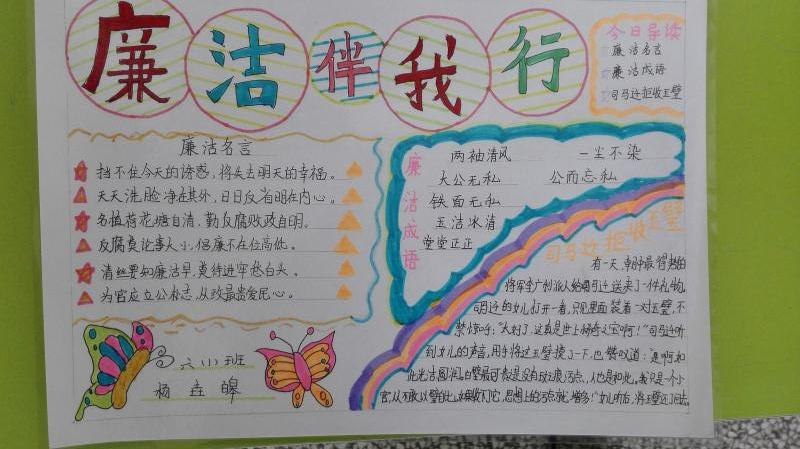 廉洁伴我行
今日导读
廉洁名言
廉洁成语
司马迁拒收玉璧
廉洁名言
挡不住今天的诱惑，将失去明天的幸福。
天天洗脸净在其外，日日反省明在内心。
多植荷花塘自清，勤反腐败政自明。
反腐莫论事大小，倡廉不在位高低。
清丝要知廉洁早，莫待进牢愁白头。
为官应立公朴志，从政最贵爱民心。
六（1）班
杨垚皞
廉洁成语
两袖清风 一尘不染
大公无私 公而忘私
铁面无私
玉洁冰清
堂堂正正
司马迁拒收玉璧
有一天，朝中最得势的
将军李广利派人给司马迁送来了一件礼物。
司马迁的女儿打开一看，只见里面装着一对玉璧，不
禁惊呼：“太好了，这真是世上稀奇之宝啊！”司马迁听
到女儿的声音，用手将过玉璧摸了一下，也赞叹道：“真啊，如
此光洁圆润。白璧最可贵是没有斑痕污点，人也是如此。我只是一个小
官，从不敢以璧自比，如果收下它，思想上的污点就增多！”女儿听后，将玉璧还了回去。